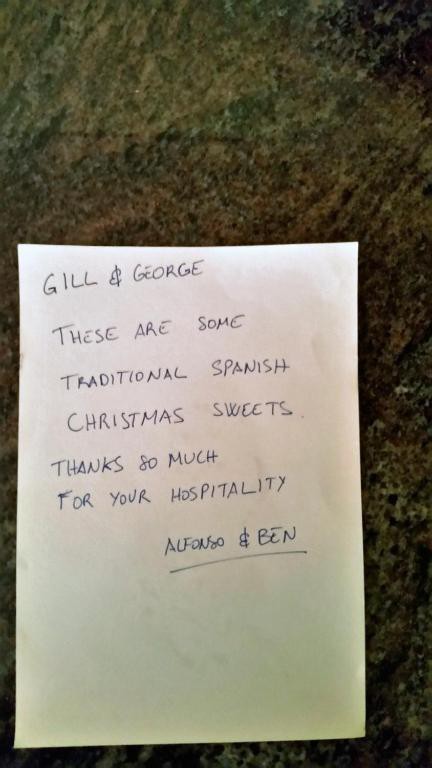 GILL & GEORGE
THESE ARE SOME
TRADITIONAL SPANISH
CHRISTMAS SWEETS.
THANKS SO MUCH
FOR YOUR HOSPITALITY
ALFONSO & BEN